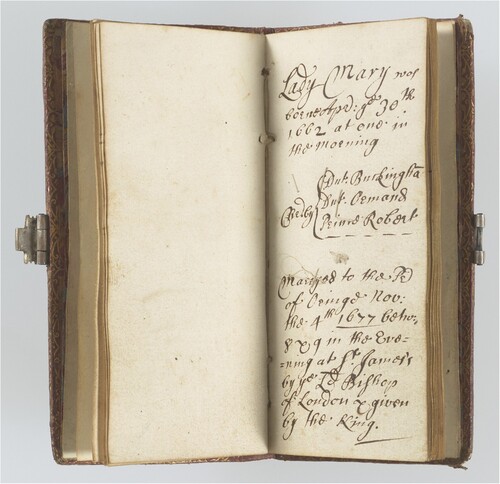 Lady Mary was
borne Apr: ye 30th
1662 at one in
the morning
Dut. Buckingha
Godby Dut. Ormand
Prince Robert
Marryed to the Pr
of Orange Nov:
the 4th 1677 betw:
8 & 9 in the Eve-
-ning at St. James's
by ye Ld Bishop
of London & given
by the King.